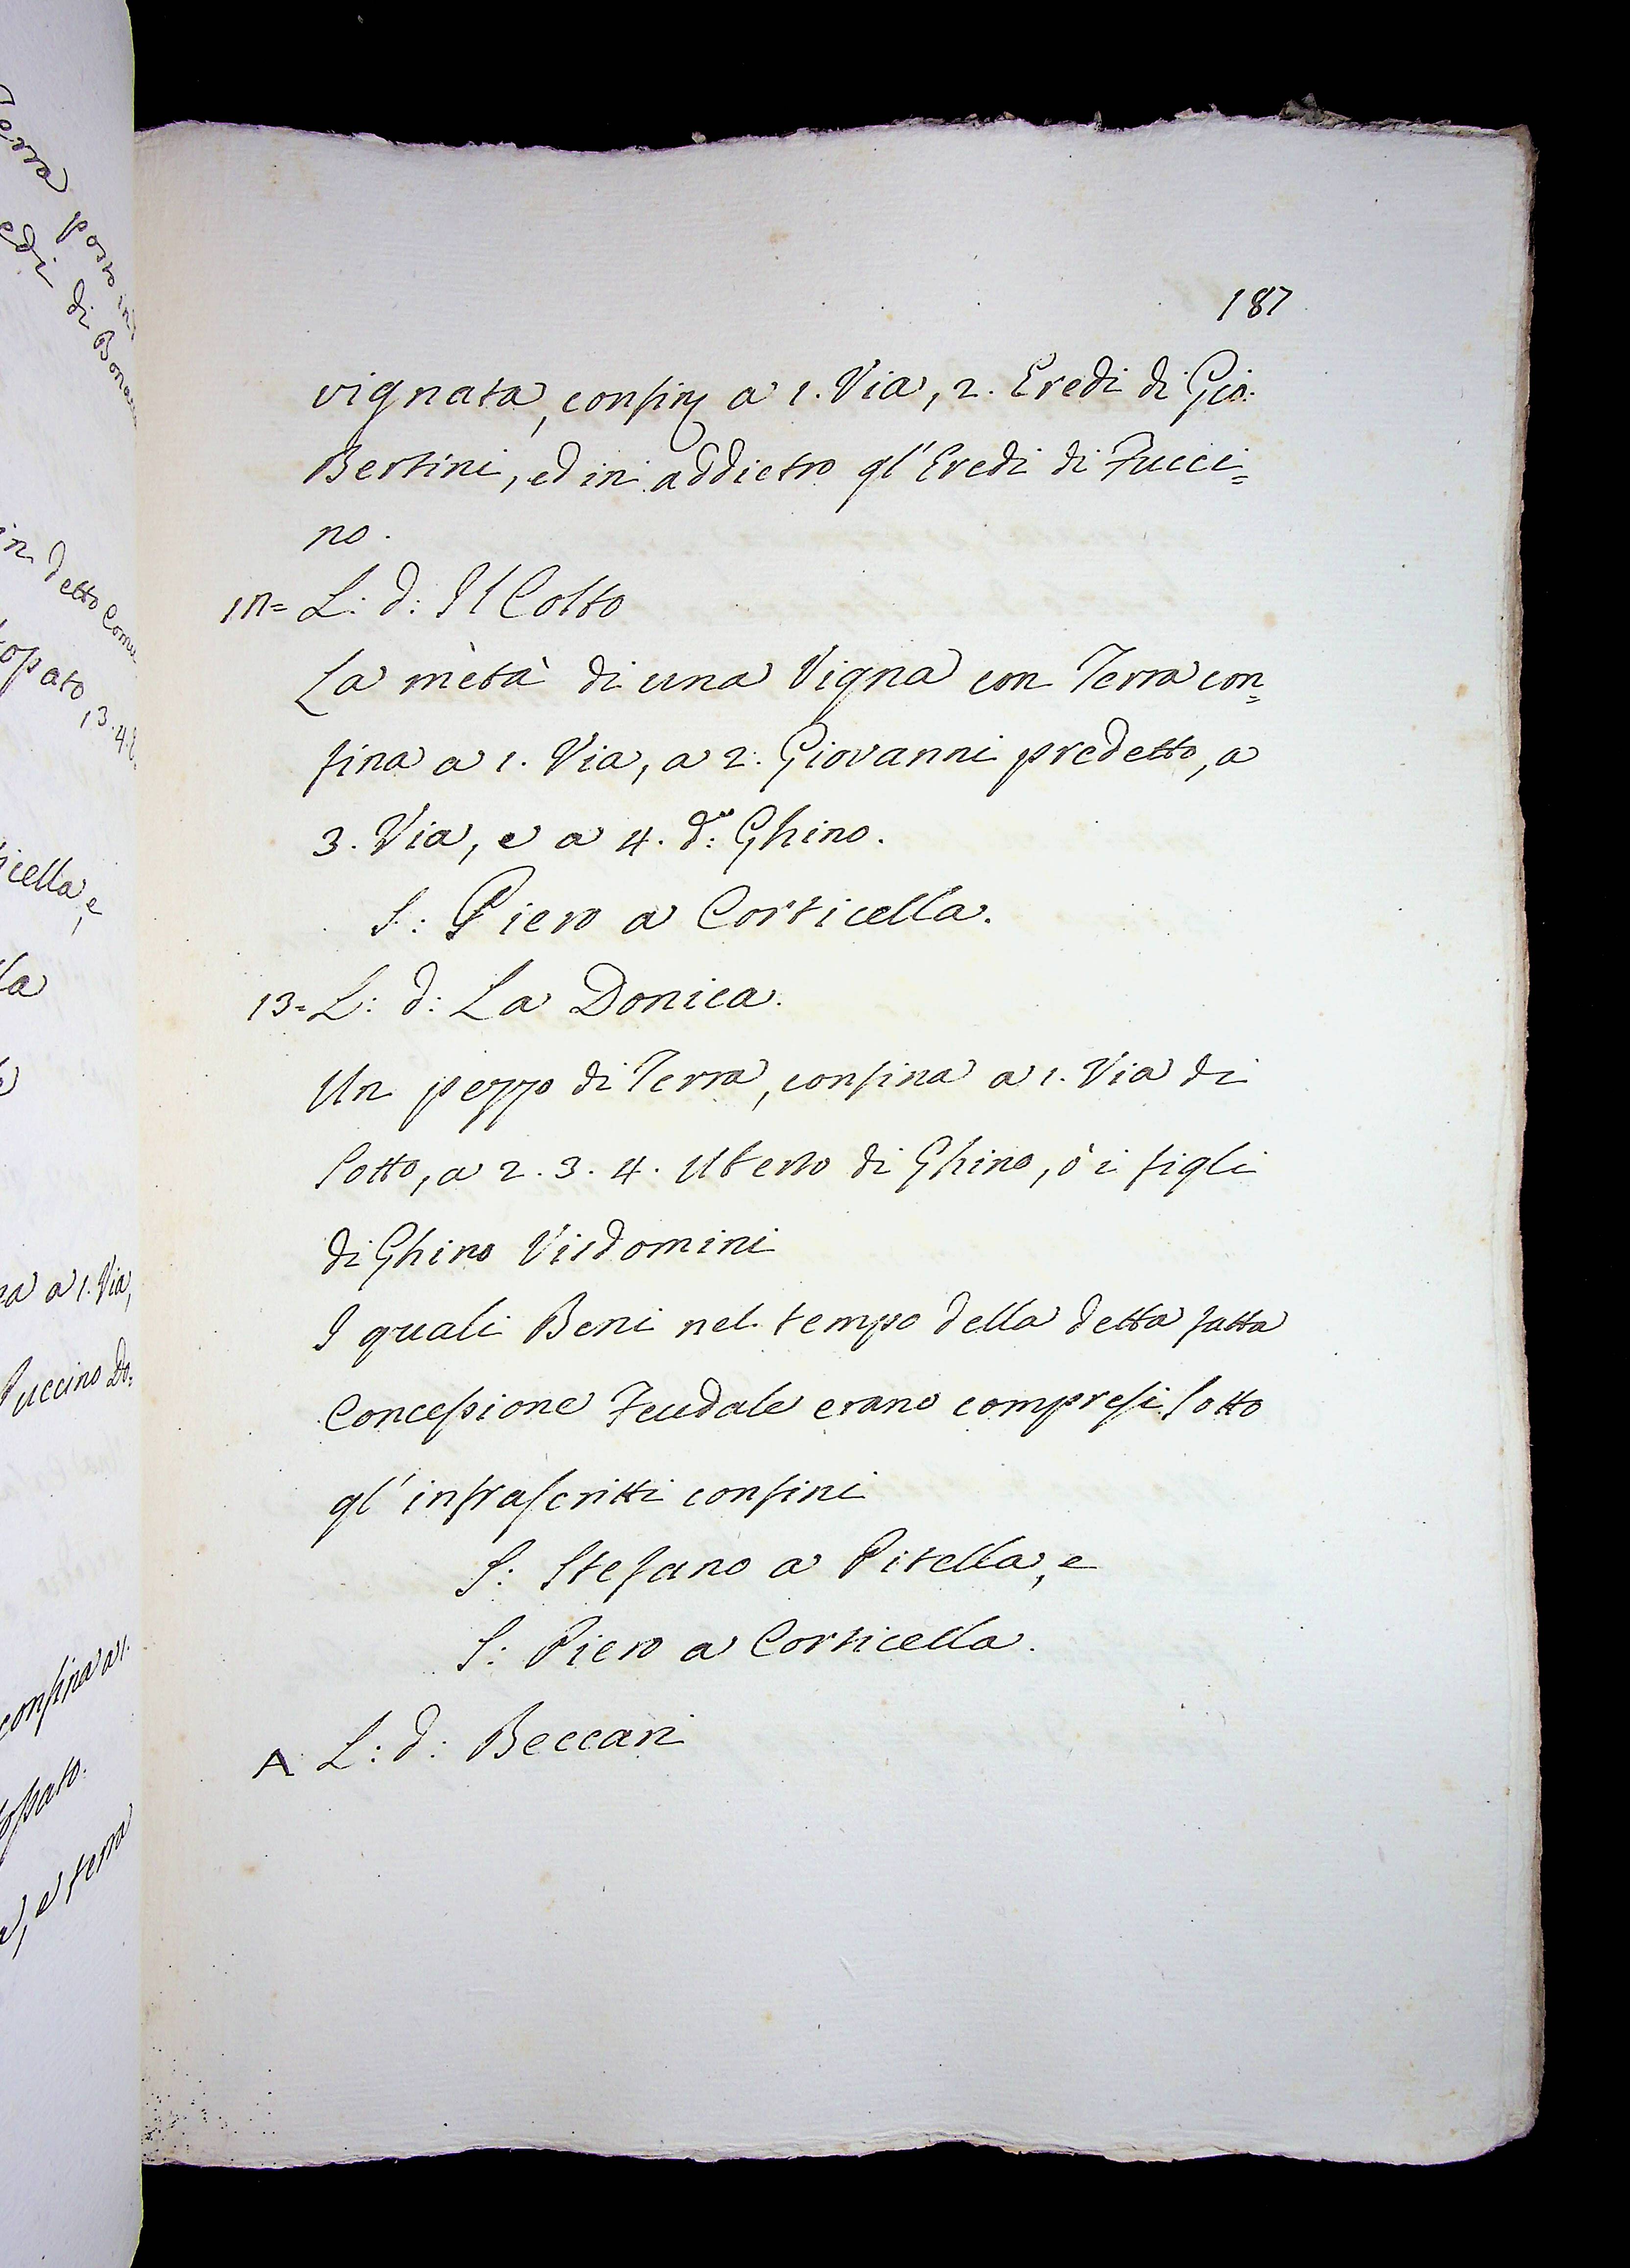 187
vignata, confina a 1. Via, 2. Eredi di Gio:
Bertini, ed in addietro gl' Eredi di Fucci=
no.
12= L: d: Il Colto
La metà di una Vigna con Terra con=
fina a 1. Via, a 2. Giovanni predetto, a
3. Via, e a 4. d.º Ghino.
S: Piero a Corticella.
13= L: d: La Donica.
Un pezzo di Terra, confina a 1. Via di
Sotto, a 2. 3. 4. Uberto di Ghino, ò i figli
di Ghino Visdomini
I quali Beni nel tempo della detta fatta
Concessione Feudale erano compresi sotto
gl' infrascritti confini
S: Stefano a Pitella, e
S: Piero a Corticella.
A L: d: Beccari